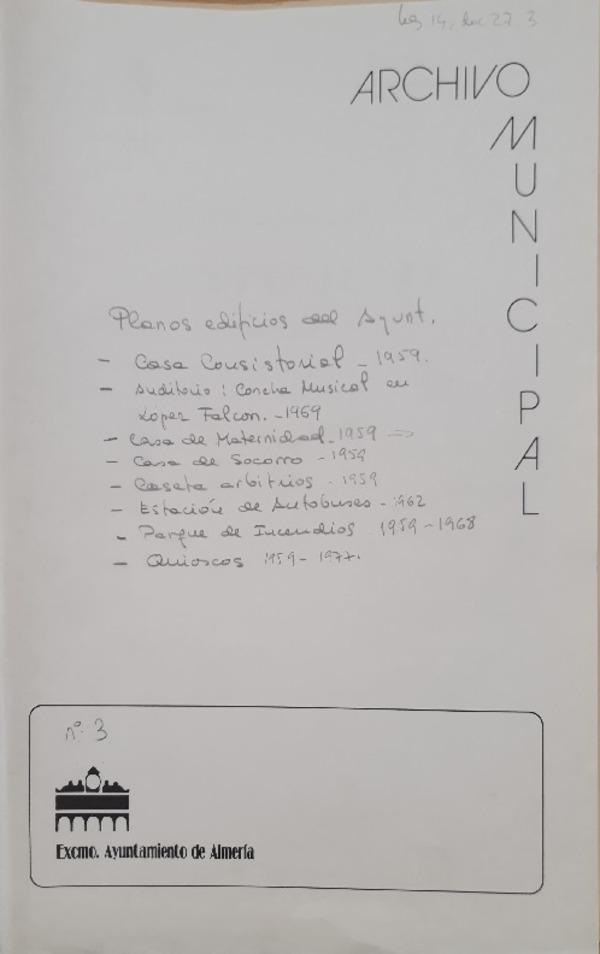 Leg 14, doc 27.3
ARCHIVO
MUNICIPAL
Planos edificios del Ayunt.
- Casa Consistorial - 1959.
- Auditorio: Concha Musical en
López Falcon. - 1969
- Casa de Maternidad - 1959 =>
- Casa de Socorro - 1959
- Caseta arbitrios - 1959
- Estación de Autobuses - 1962
- Parque de Incendios 1959 - 1968
- Quioscos 1959 - 1977.
nº 3
Excmo. Ayuntamiento de Almería